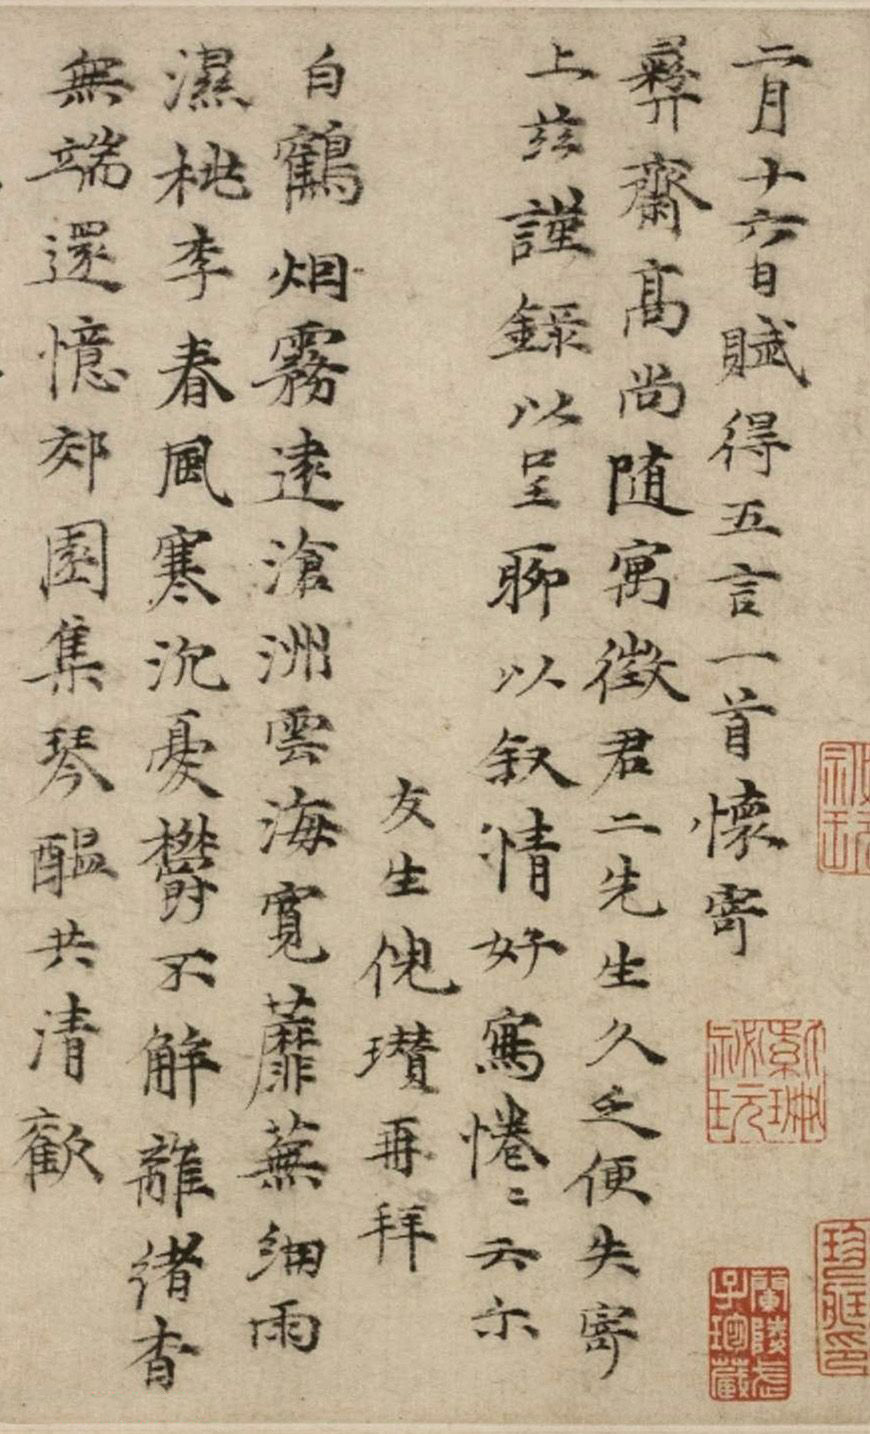 二月十六日賦得五言一首懷寄
彝齋高尚随寓徵君二先生久乏便失寄
上茲謹錄以呈聊以叙情好寫惓〻云尔
友生倪瓚再拜
白鶴烟霧遠滄洲雲海寬蘼蕪細雨
濕桃李春風寒沉憂欝不解離緒杳
無端還憶郊園集琴醖共清歡